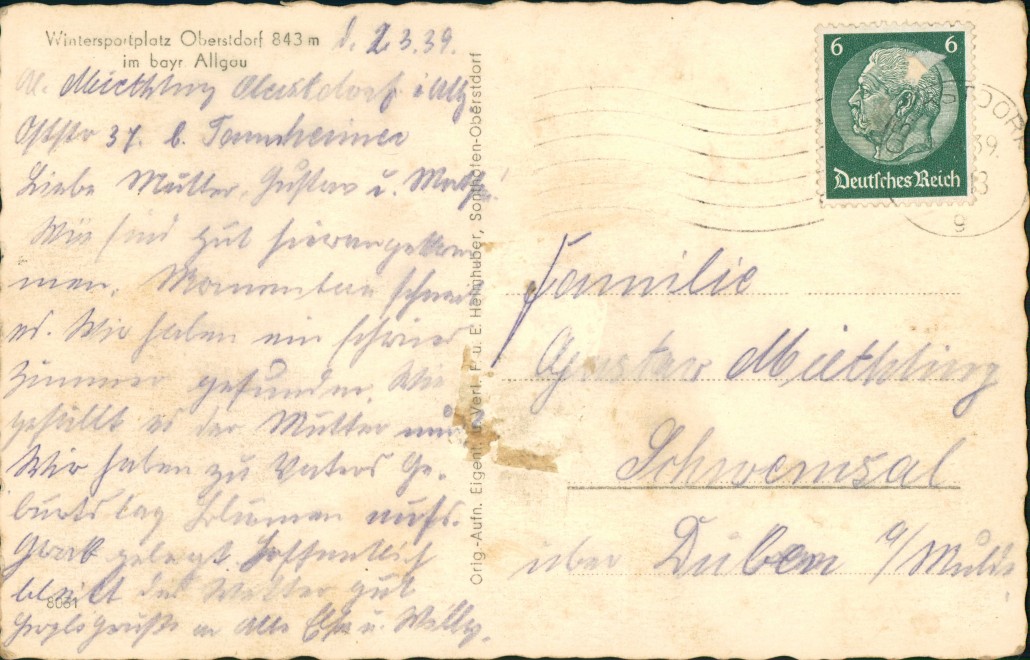 Wintersportplatz Oberstdorf 843 m
im bayr. Allgäu
d. 2.3.39.
Miethling Oberstdorf i Allg
Oststr 37. b. Tannheimer
Liebe Mutter, Gustav u.
Wir sind gut hier angekom
men. Momentan schneit
es. Wir haben ein schönes
Zimmer gefunden. Wie
gefällt es der Mutter nun?
Wir haben zu Vaters Ge-
burtstag Blumen aufs
Grab gelegt. Hoffentlich
bleibt das Wetter gut
Herzl. Grüße an Alle Elsa u. Willy.
8031
Orig.-Aufn. Eigent. u. Verl. F. u. E. Heimhuber, Sonthofen-Oberstdorf
6 6
Deutsches Reich
OBERSTDORF
39.
g
Familie
Gustav Miethling
Schwemsal
über Düben a/Mulde